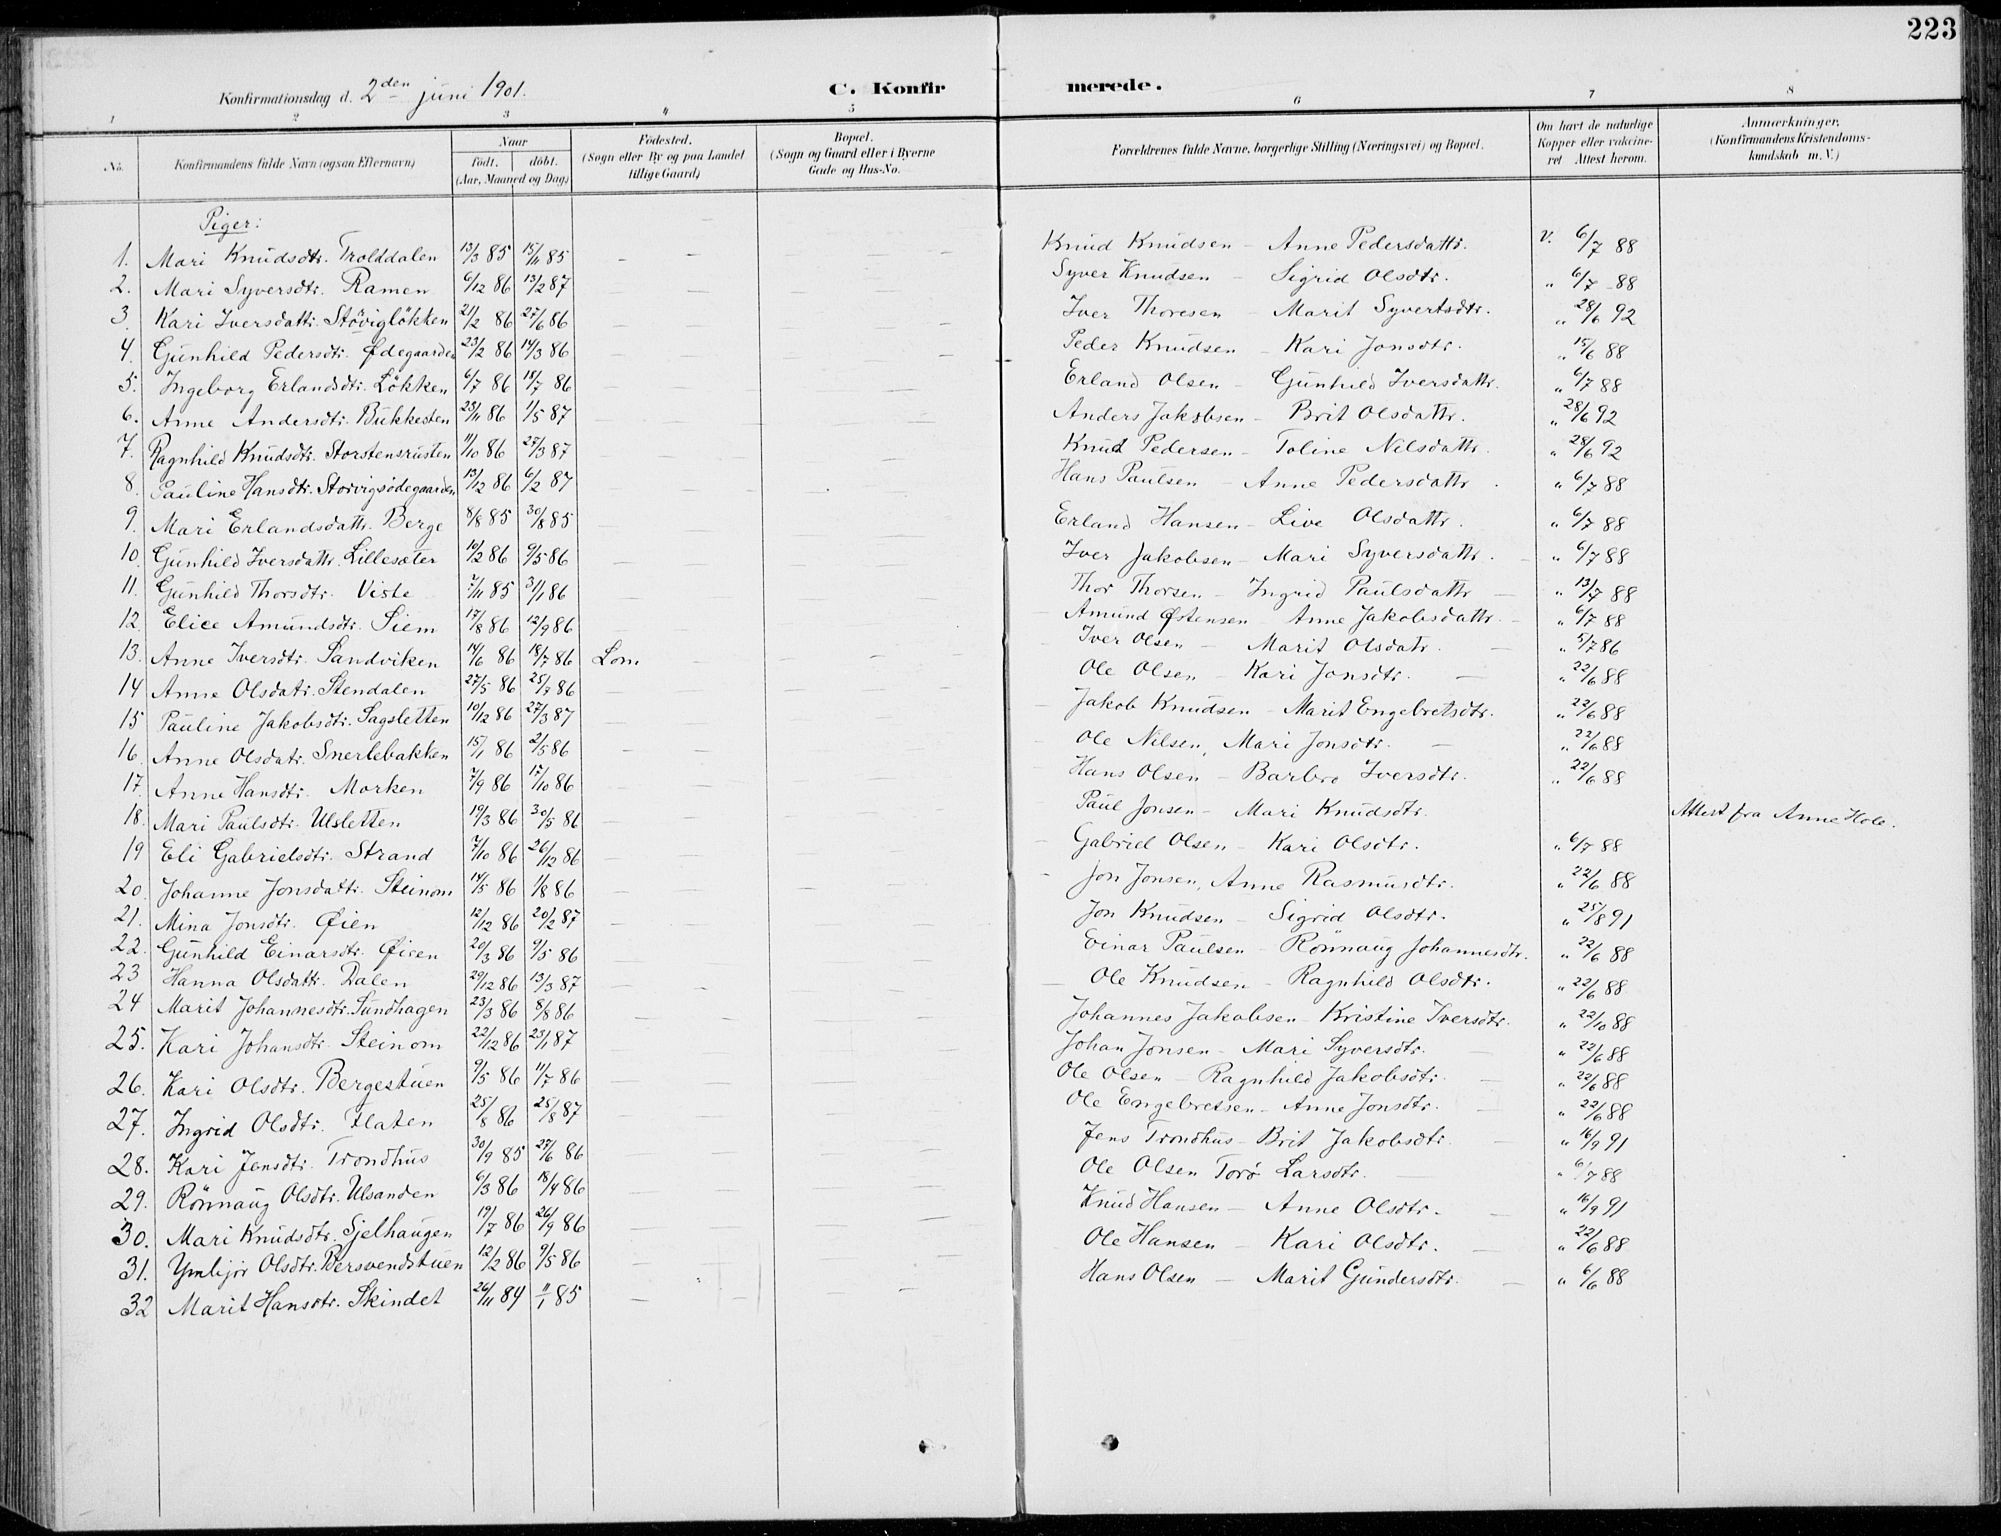 223
Konfirmationsdag d. 2den juni 1901. C. Konfirmerede.
1 2 3 4 5 6 7 8
No. Konfirmandens fulde Navn (ogsaa Efternavn) Naar født. døbt. (Aar, Maaned og Dag) Födested. (Sogn eller By og paa Landet tillige Gaard) Bopæl. (Sogn og Gaard eller i Byerne Gade og Hus-No. Forældrenes fulde Navne, borgerlige Stilling (Næringsvei) og Bopæl. Om havt de naturlige Kopper eller vakcineret Attest herom. Anmærkninger. (Konfirmandens Kristendomskundskab m. V.)
Piger:
1. Mari Knudsdtr. Trolddalen 13/3 85 15/11 85 — — Knud Knudsen — Anne Pedersdattr. V. 6/7 88
2. Mari Syversdtr. Ramen 6/12 86 13/2 87 Syver Knudsen — Sigrid Olsdtr. " 6/7 88
3. Kari Iversdattr. Stöviglökken 21/2 86 27/6 86 Iver Thoresen — Marit Syvertsdtr. " 28/6 92
4. Gunhild Pedersdtr. Ødegaarden 23/2 86 14/3 86 Peder Knudsen — Kari Jonsdtr. " 15/6 88
5. Ingeborg Erlandsdtr. Lökken 6/7 86 18/7 86 Erland Olsen — Gunhild Iversdattr. " 6/7 88
6. Anne Andersdtr. Bukkesten 23/11 86 1/5 87 Anders Jakobsen — Brit Olsdattr. " 28/6 92
7. Ragnhild Knudsdtr. Storstensrusten 11/10 86 27/3 87 Knud Pedersen — Toline Nilsdattr. " 28/6 92
8. Pauline Hansdtr. Storvigsödegaarden 13/12 86 6/2 87 Hans Paulsen — Anne Pedersdattr. " 6/7 88
9. Mari Erlandsdattr. Berge 8/8 85 30/8 85 Erland Hansen — Live Olsdattr. " 6/7 88
10. Gunhild Iversdattr. Lillesæter 10/2 86 9/5 86 Iver Jakobsen — Mari Syversdattr. " 6/7 88
11. Gunhild Thorsdtr. Viste 7/11 85 31/1 86 Thor Thorsen — Ingrid Paulsdattr " 13/7 88
12. Elice Amundsdtr. Siem 17/8 86 12/9 86 Amund Østensen — Anne Jakobsdattr. " 6/7 88
13. Anne Iversdtr. Sandviken 14/6 86 18/7 86 Lom Iver Olsen — Marit Olsdatr. " 5/7 86
14 Anne Olsdatr. Stendalen 27/5 86 25/7 86 Ole Olsen — Kari Jonsdtr. " 22/6 88
15 Pauline Jakobsdtr. Sagsletten 10/12 86 27/3 87 Jakob Knudsen — Marit Engebretsdtr. " 22/6 88
16. Anne Olsdatr. Snerlebakken 15/1 86 2/5 86 Ole Nilsen, Mari Jonsdtr. " 22/6 88
17. Anne Hansdtr. Morken 7/9 86 17/10 86 Hans Olsen — Barbro Iversdtr. " 22/6 88
18. Mari Paulsdtr. Ulsletten 19/3 86 30/5 86 Paul Jonsen — Mari Knudsdtr. Attest fra Anne Hole.
19 Eli Gabrielsdtr. Strand 7/10 86 26/12 86 Gabriel Olsen — Kari Olsdtr. " 6/7 88
20. Johanne Jonsdattr. Steinom 14/5 86 1/8 86 Jon Jonsen, Anne Rasmusdtr. " 22/6 88
21. Mina Jonsdtr. Øien 12/12 86 20/2 87 Jon Knudsen — Sigrid Olsdtr. " 25/8 91
22. Gunhild Einarsdtr. Øien 20/3 86 9/5 86 Einar Paulsen — Rönnaug Johannesdtr. " 22/6 88
23 Hanna Olsdattr. Dalen 29/12 86 13/3 87 Ole Knudsen — Ragnhild Olsdtr. " 22/6 88
24 Marit Johannesdtr. Sundhagen 23/3 86 8/8 86 Johannes Jakobsen — Kristine Iversdtr. " 22/10 88
25. Kari Johansdtr. Steinom 22/12 86 23/1 87 Johan Jonsen — Mari Syversdtr. " 22/6 88
26. Kari Olsdtr. Bergestuen 9/5 86 11/7 86 Ole Olsen — Ragnhild Jakobsdtr. " 22/6 88
27. Ingrid Olsdtr. Flaten 25/8 86 25/8 87 Ole Engebretsen — Anne Jonsdtr. " 22/6 88
28. Kari Jensdtr. Trondhus 30/9 85 27/6 86 Jens Trondhus — Brit Jakobsdtr. " 16/9 91
29. Rönnaug Olsdtr. Ulsanden 6/3 86 18/4 86 Ole Olsen Torö Larsdtr. " 6/7 88
30. Mari Knudsdtr. Sjelhaugen 19/7 86 26/9 86 Knud Hansen — Anne Olsdtr. " 16/9 91
31. Ymbjör Olsdtr. Bersvendstuen 12/2 86 9/5 86 Ole Hansen — Kari Olsdtr. " 22/6 88
32 Marit Hansdtr. Skindet 26/11 84 11/1 85 Hans Olsen — Marit Gundersdtr. " 6/6 88